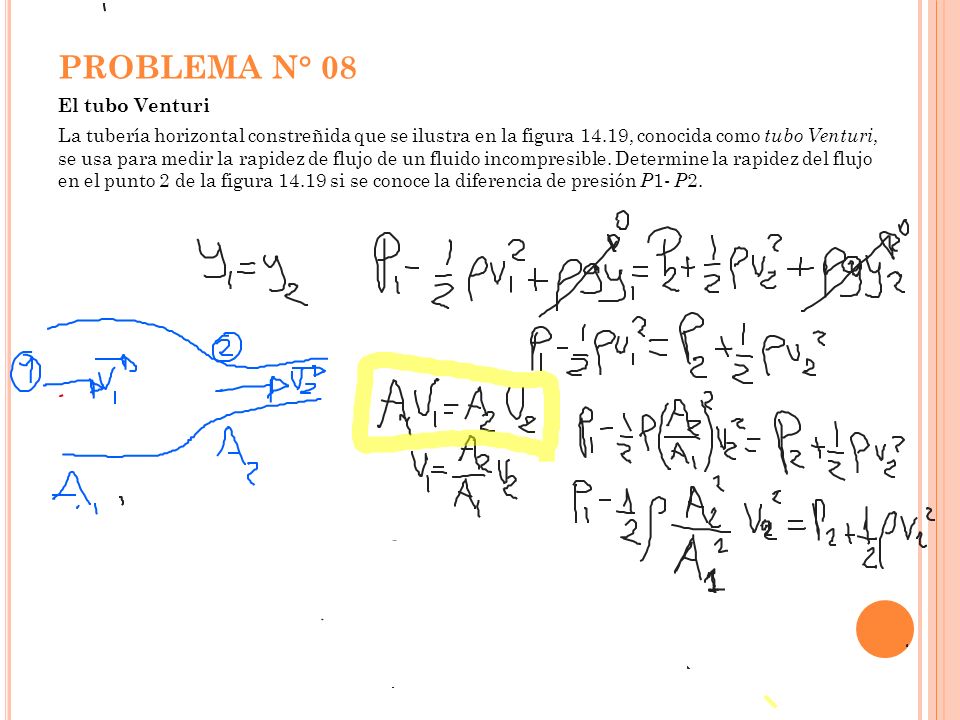 PROBLEMA N° 08
El tubo Venturi
La tubería horizontal constreñida que se ilustra en la figura 14.19, conocida como tubo Venturi,
se usa para medir la rapidez de flujo de un fluido incompresible. Determine la rapidez del flujo
en el punto 2 de la figura 14.19 si se conoce la diferencia de presión P1- P2.
y₁ = y₂
P₁ - 1/2 ρv₁² + ρgy₁ 0 = P₂ + 1/2 ρv₂² + ρgy₂ 0
P₁ - 1/2 ρv₁² = P₂ + 1/2 ρv₂²
1 V₁
2 V₂
A₁
A₂
A₁V₁ = A₂V₂
V₁ = A₂/A₁ V₂
P₁ - 1/2 ρ(A₂/A₁)² V₂² = P₂ + 1/2 ρv₂²
P₁ - 1/2 ρ A₂²/A₁² V₂² = P₂ + 1/2 ρv₂²